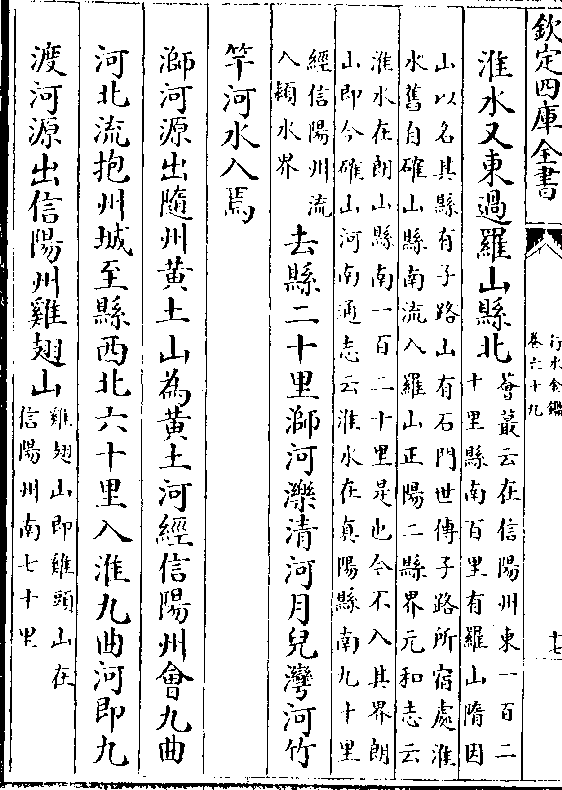 欽定四庫全書
行水金鑑
卷六十九
十七
淮水又東過羅山縣北
薈蕞云在信陽州東一百二
十里縣南百里有羅山隋因
山以名其縣有子路山有石門世傳子路所宿處淮
水舊自確山縣南流入羅山正陽二縣界元和志云
淮水在朗山縣南一百二十里是也今不入其界朗
山即今確山河南通志云淮水在真陽縣南九十里
經信陽州流
入潁水界
去縣二十里溮河濼清河月兒灣河竹
竿河水入焉
溮河源出隨州黃土山為黃土河經信陽州會九曲
河北流抱州城至縣西北六十里入淮九曲河即九
渡河源出信陽州雞翅山
雞翅山即雞頭山在
信陽州南七十里